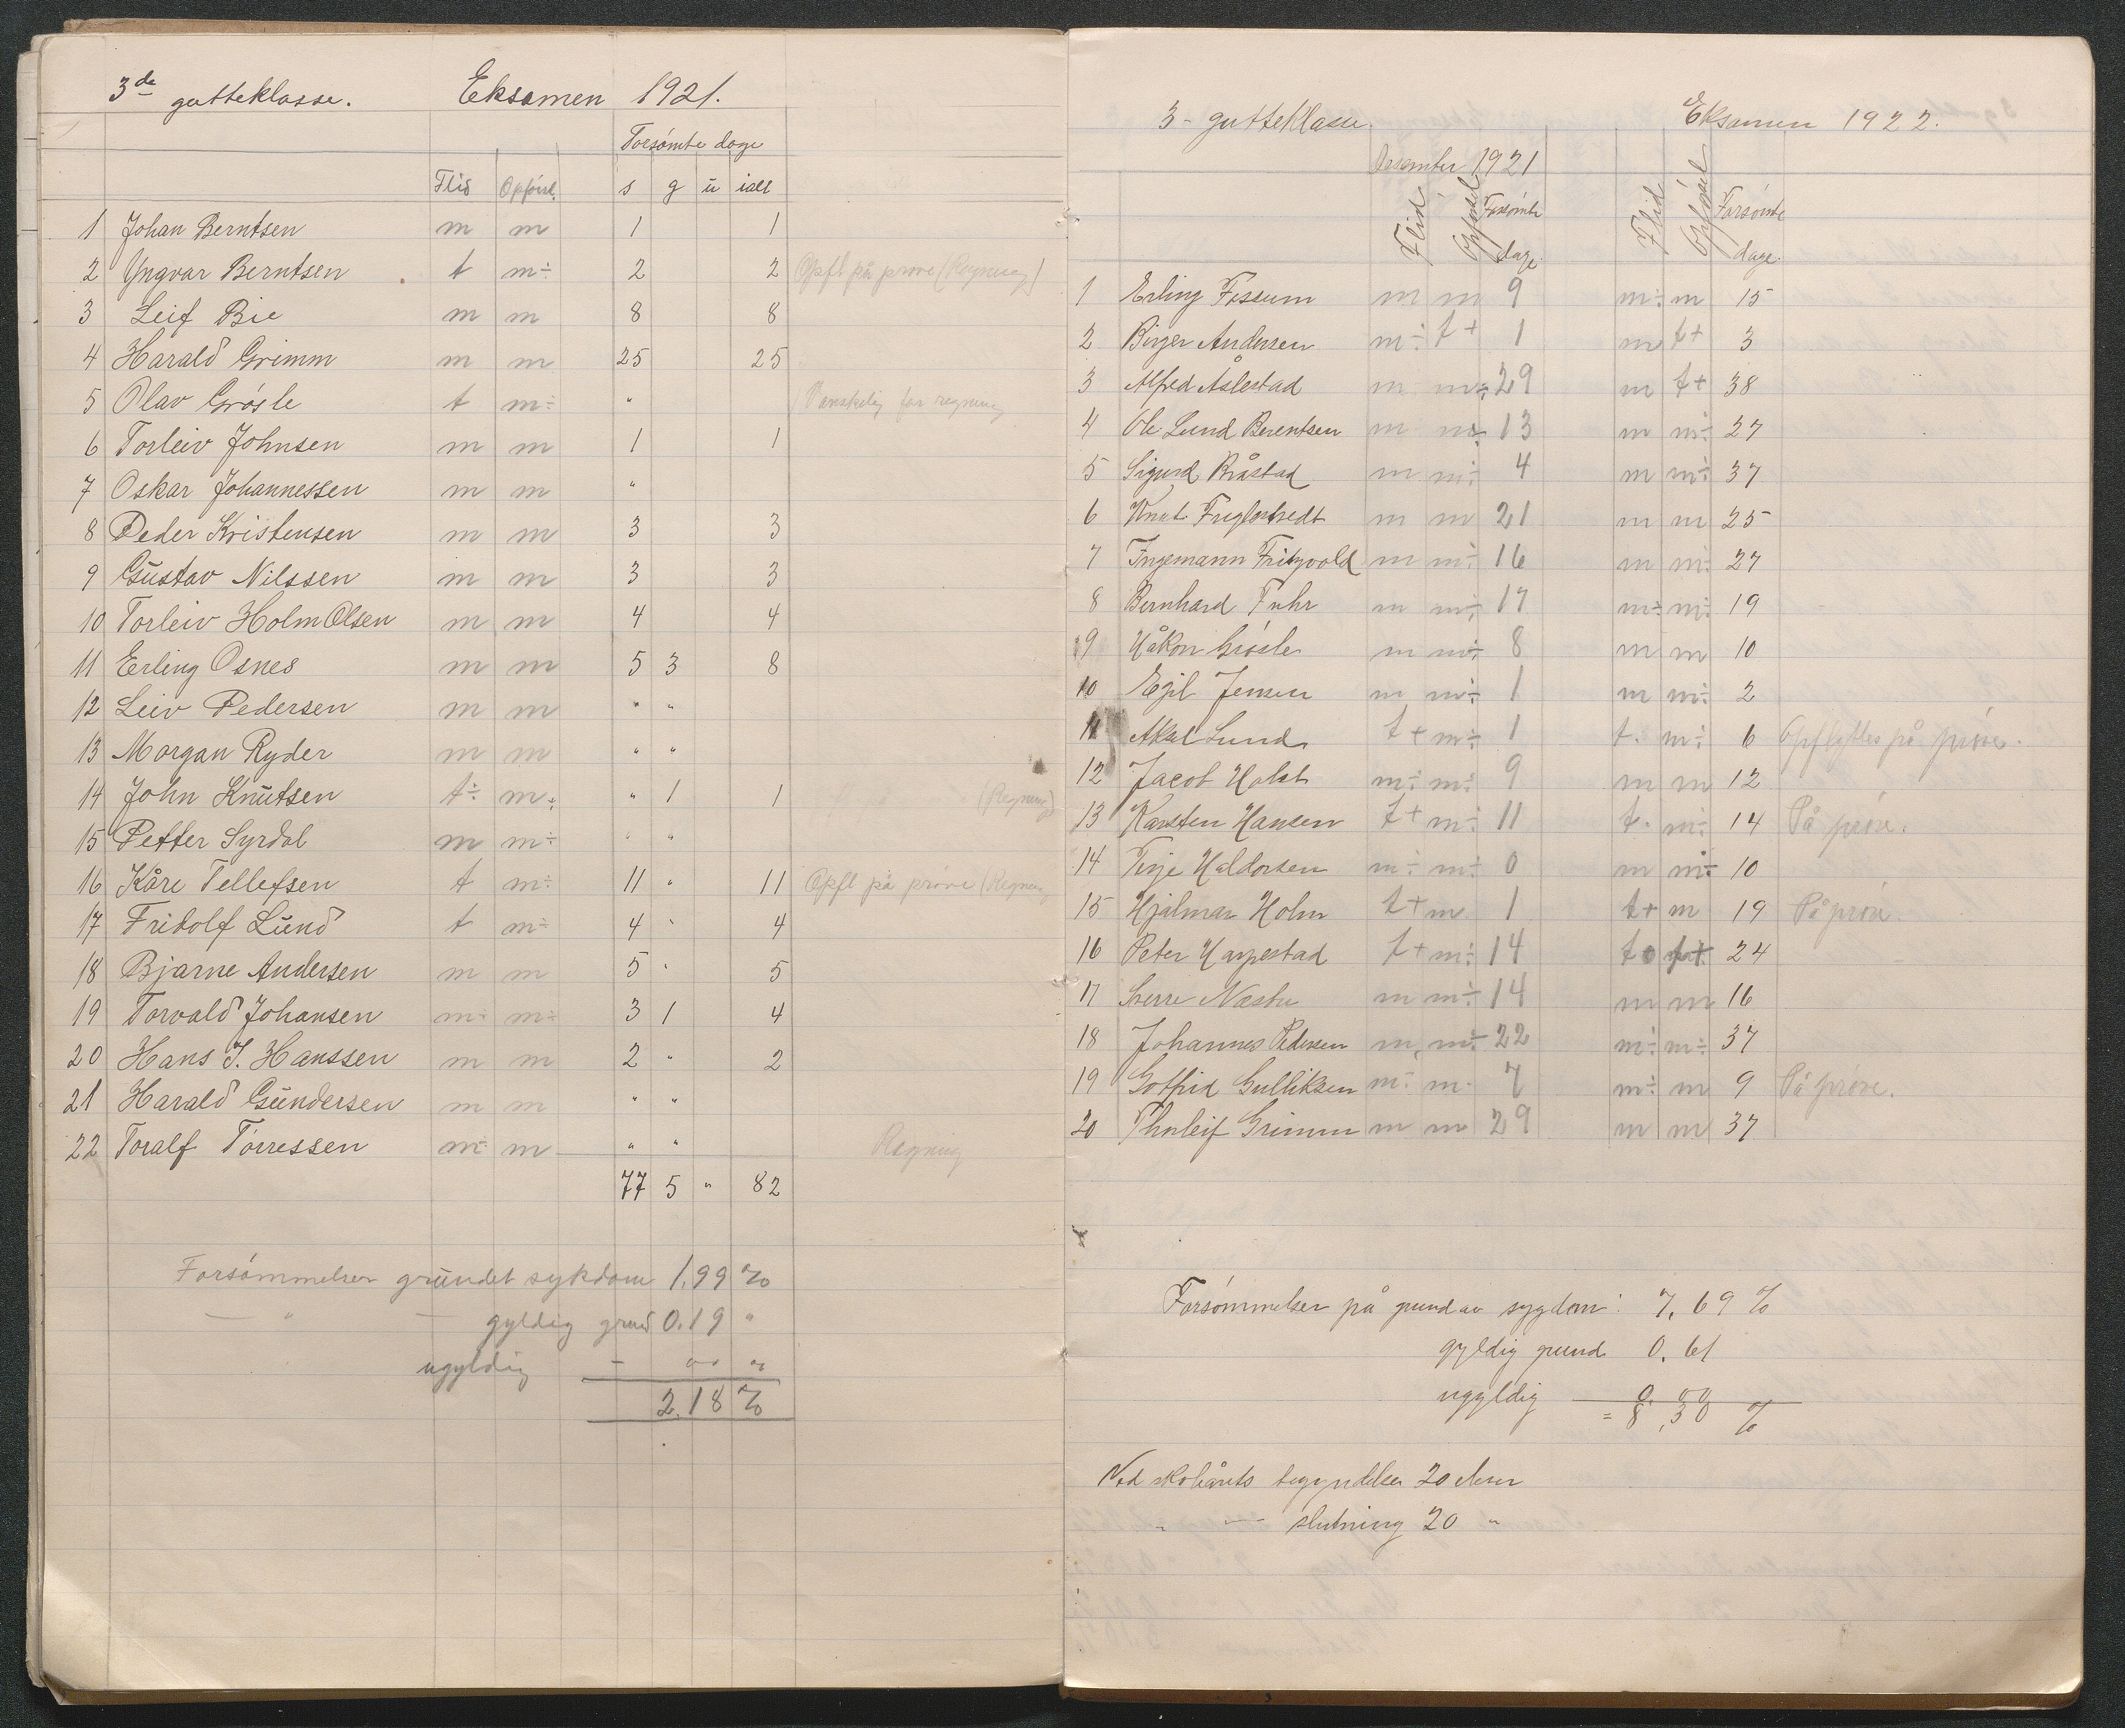 3de gutteklasse. Eksamen 1921.
Forsømte dage
Flid Opførsl. s g u ialt
1 Johan Berntsen m m 1 1
2 Yngvar Berntsen t m÷ 2 2 Opfl på prøve (Regning)
3 Leif Bie m m 8 8
4 Harald Grimm m m 25 25
5 Olav Grösle t m÷ " Vanskelig for regning
6 Torleiv Johnsen m m 1 1
7 Oskar Johannessen m m "
8 Peder Kristensen m m 3 3
9 Gustav Nilssen m m 3 3
10 Torleiv Holm Olsen m m 4 4
11 Erling Osnes m m 5 3 8
12 Leiv Pedersen m m " "
13 Morgan Ryder m m " "
14 John Knutsen t÷ m÷ " 1 1 (Regning)
15 Petter Syrdal m m÷ " "
16 Kåre Tellefsen t m÷ 11 " 11 Opfl på prøve (Regning
17 Fridolf Lund t m÷ 4 " 4
18 Bjarne Andersen m m 5 " 5
19 Torvald Johansen m÷ m÷ 3 1 4
20 Hans J. Hanssen m m 2 " 2
21 Harald Gundersen m m " "
22 Toralf Torressen m÷ m " " Regning
77 5 " 82
Forsømmelser grundet sykdom 1,99 %
— " — gyldig grund 0.19 "
" ugyldig — " "
2,18 %
3 - gutteklasse. Eksamen 1922.
Desember 1921
Flid Opførsel Forsømte dage. Flid Opførsel Forsømte dage.
1 Erling Fossum m m 9 m÷ m 15
2 Birger Andersen m÷ t+ 1 m t+ 3
3 Alfred Åslestad m m÷ 29 m t+ 38
4 Ole Lund Berentsen m m÷ 13 m m÷ 27
5 Sigurd Bråstad m m÷ 4 m m÷ 37
6 Knut Fuglestvedt m m 21 m m 25
7 Ingemann Fritzvold m m÷ 16 m m÷ 27
8 Bernhard Fuhr m m÷ 17 m÷ m÷ 19
9 Håkon Grösle m m÷ 8 m m 10
10 Egil Jensen m m÷ 1 m m÷ 2
11 Aksel Lund t+ m÷ 1 t. m÷ 6 Opflyttes på prøve.
12 Jacob Holst m÷ m÷ 9 m m 12
13 Karsten Hansen t+ m÷ 11 t. m÷ 14 På prøve.
14 Terje Haldorsen m÷ m÷ 0 m m÷ 10
15 Hjalmar Holm t+ m 1 t+ m 19 På prøve.
16 Peter Harpestad t+ m÷ 14 t t+ 24
17 Sverre Næsbu m m÷ 14 m m 16
18 Johannes Pedersen m. m÷ 22 m÷ m÷ 37
19 Gotfrid Gulliksen m÷ m. 7 m÷ m 9 På prøve.
20 Thorleif Grimm m m 29 m m 37
Forsømmelser på grund av sygdom: 7,69 %
gyldig grund 0,61
ugyldig 0,00
= 8,30 %
Ved skoleårets begyndelse 20 elever
" — slutning 20 "